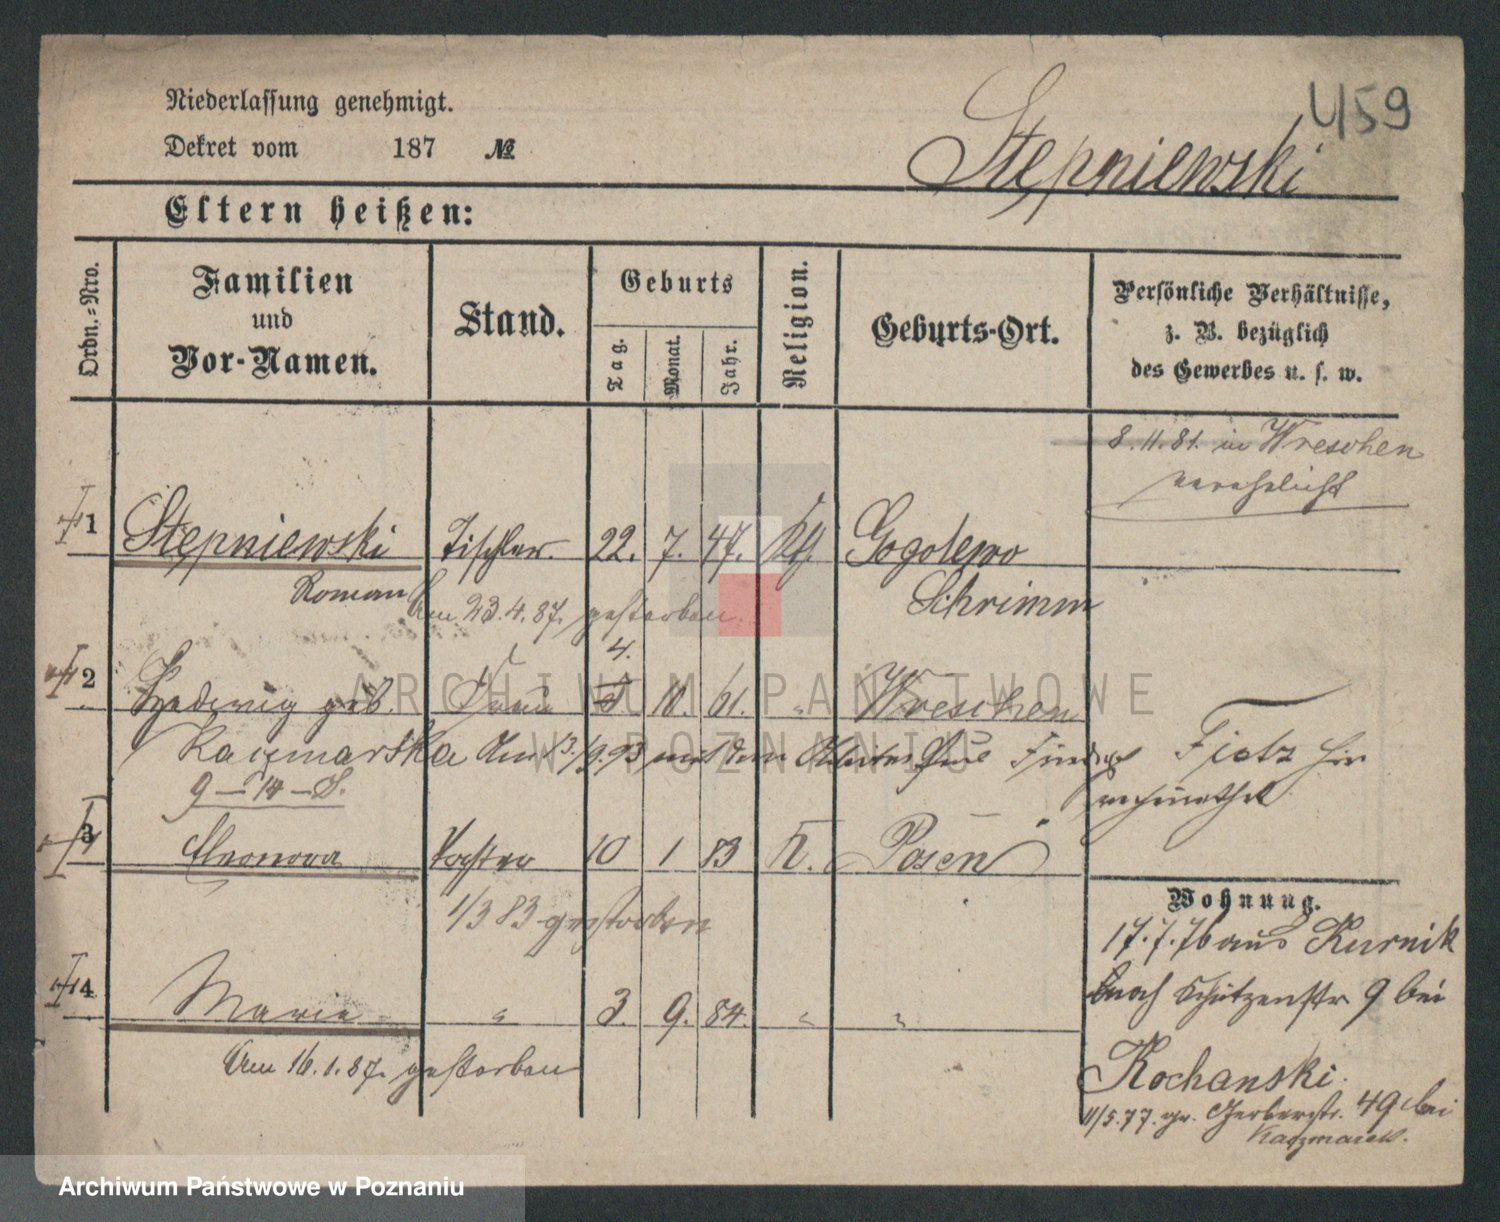 Niederlassung genehmigt.
459
Dekret vom 187 №
Stępniewski
Eltern heißen:
Ordn.=Nro.
Familien
und
Vor-Namen.
Stand.
Geburts
Tag.
Monat.
Jahr.
Religion.
Geburts-Ort.
Persönliche Verhältnisse,
z. B. bezüglich
des Gewerbes u. s. w.
8.11.81. in Wreschen
verehelicht
1 Stępniewski Tischler. 22. 7. 47. Kth. Gogolewo
Roman Am 23.4.87. gestorben. Schrimm
4.
2 Hedwig geb. Frau 10. 61. " Wreschen
Kaczmarska Am 13./9.93 mit dem Fietz hier
verheirathet
9 – 14 – S.
3 Eleonora Tochter 10 1 83 K. Posen
1/3 83 gestorben
4 Marie " 3. 9. 84. " "
Am 16.1.87. gestorben
Wohnung.
17.7.76 aus Kurnik
nach Schützenstr 9 bei
Kochanski.
11/5.77. gr. Gerberstr. 49 bei
Kaczmarek.
ARCHIWUM PAŃSTWOWE
W POZNANIU
Archiwum Państwowe w Poznaniu